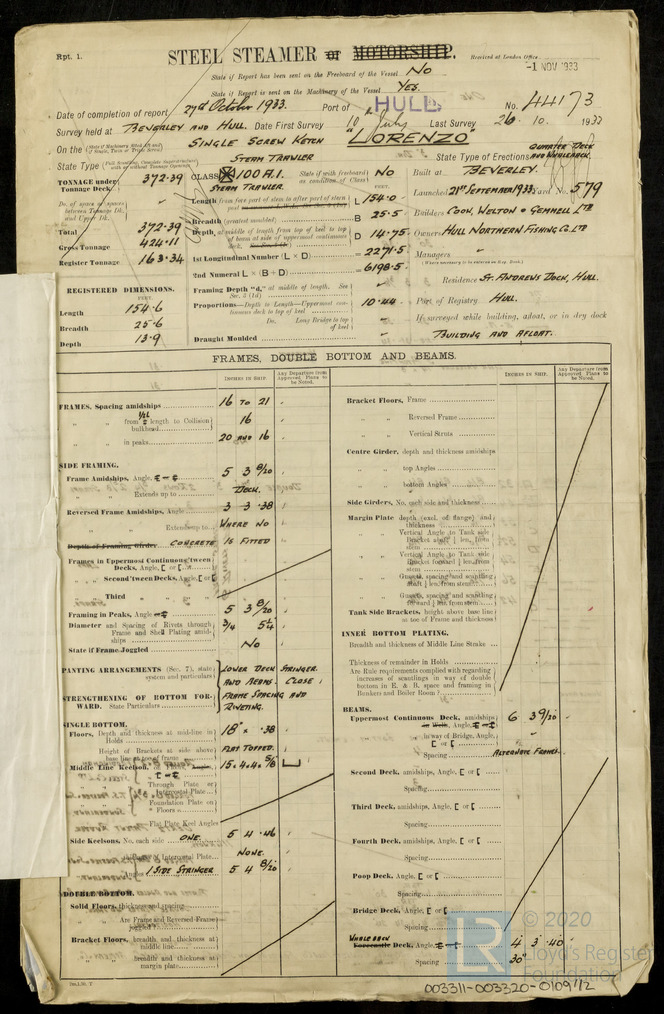 Rpt. 1.
STEEL STEAMER or MOTORSHIP.
Received at London Office
-1 NOV 1933
State if Report has been sent on the Freeboard of the Vessel No
State if Report is sent on the Machinery of the Vessel Yes.
HULL
Date of completion of report 27th October 1933. Port of
No. 44173
Survey held at Beverley and Hull. Date First Survey 10 July Last Survey 26. 10. 1933
On the Single Screw Ketch "LORENZO"
Steam Trawler
State Type
State Type of Erections Quarter Deck and Whaleback.
TONNAGE under Tonnage Deck 372.39
CLASS 100 A.1. State if with freeboard as condition of Class No
Steam Trawler.
Built at Beverley.
Launched 21st September 1933 Yard No. 579
Length from fore part of stem to after part of stern L 154.0
Breadth (greatest moulded) B 25.5
Builders Cook, Welton & Gemmell Ltd
Total 372.39
Gross Tonnage 424.11
Register Tonnage 163.34
Depth, at middle of length from top of keel to top of beam at side of uppermost continuous deck D 14.75
Owners Hull Northern Fishing Co. Ltd
1st Longitudinal Number (L × D) = 2271.5
Managers
2nd Numeral L × (B + D) = 6198.5
Residence St. Andrews Dock, Hull.
REGISTERED DIMENSIONS.
FEET.
Length 154.6
Breadth 25.6
Depth 13.9
Framing Depth "d," at middle of length. See Sec. 3 (1d)
Proportions—Depth to Length—Uppermost continuous deck to top of keel 10.44
Do. Long Bridge to top of keel
Draught Moulded
Port of Registry Hull.
If surveyed while building, afloat, or in dry dock
Building and Afloat.
FRAMES, DOUBLE BOTTOM AND BEAMS.
INCHES IN SHIP.
Any Departure from Approved Plans to be Noted.
INCHES IN SHIP.
Any Departure from Approved Plans to be Noted.
FRAMES, Spacing amidships 16 to 21
" " from 1/5 length to Collision bulkhead 16
" " in peaks 20 and 16
SIDE FRAMING.
Frame Amidships, Angle 5 3 8/20
" " Extends up to Deck.
Reversed Frame Amidships, Angle 3 3 .38
" " Extends up to Where No
Depth of Framing Girder Concrete is fitted
Frames in Uppermost Continuous 'tween Decks, Angle, [ or [
" Second 'tween Decks, Angle, [ or [
" Third " " "
Framing in Peaks, Angle 5 3 8/20
Diameter and Spacing of Rivets through Frame and Shell Plating amidships 3/4 5 1/4
State if Frame Joggled No
PANTING ARRANGEMENTS (Sec. 7), state system and particulars
Lower Deck Stringer and Beams. Close
STRENGTHENING OF BOTTOM FORWARD. State Particulars
Frame Spacing and Riveting.
SINGLE BOTTOM.
Floors, Depth and thickness at mid-line in Holds 18" x .38
Height of Brackets at side above base line at toe of frame Flat Topped.
Middle Line Keelson, 15.4.4. 5/8
" " Through Plate or Intercostal Plate
" " Foundation Plate on Floors
" " Flat Plate Keel Angles
Side Keelsons, No. each side One. 5 4 .46
" " Thickness of Intercostal Plate None.
" " Angles 1 Side Stringer 5 4 8/20
DOUBLE BOTTOM.
Solid Floors, thickness and spacing
" " Are Frame and Reversed Frame joggled
Bracket Floors, breadth and thickness at middle line
" " breadth and thickness at margin plate
Bracket Floors, Frame
" " Reversed Frame
" " Vertical Struts
Centre Girder, depth and thickness amidships
" " top Angles
" " bottom Angles
Side Girders, No. each side and thickness
Margin Plate depth (excl. of flange) and thickness
" " Vertical Angle to Tank side Bracket abaft 1/4 len. from stem
" " Vertical Angle to Tank side Bracket forward 1/4 len. from stem
" " Gussets, spacing and scantling abaft 1/4 len. from stem
" " Gussets, spacing and scantling forward 1/4 len. from stem
Tank Side Brackets, height above base line at toe of Frame and thickness
INNER BOTTOM PLATING.
Breadth and thickness of Middle Line Strake
Thickness of remainder in Holds
Are Rule requirements complied with regarding increases of scantlings in way of double bottom in E. & B. space and framing in Bunkers and Boiler Room?
BEAMS.
Uppermost Continuous Deck, amidships, Angle 6 3 9/20
" " in way of Bridge, Angle, [ or [
Spacing Alternate Frames.
Second Deck, amidships, Angle, [ or [
Spacing
Third Deck, amidships, Angle, [ or [
Spacing
Fourth Deck, amidships, Angle, [ or [
Spacing
Poop Deck, Angle, [ or [
Spacing
Bridge Deck, Angle, [ or [
Spacing
Whaleback
Forecastle Deck, Angle, 4 3 .40
Spacing 30"
LR © 2020
Lloyd's Register Foundation
003311-003320-0109 1/2